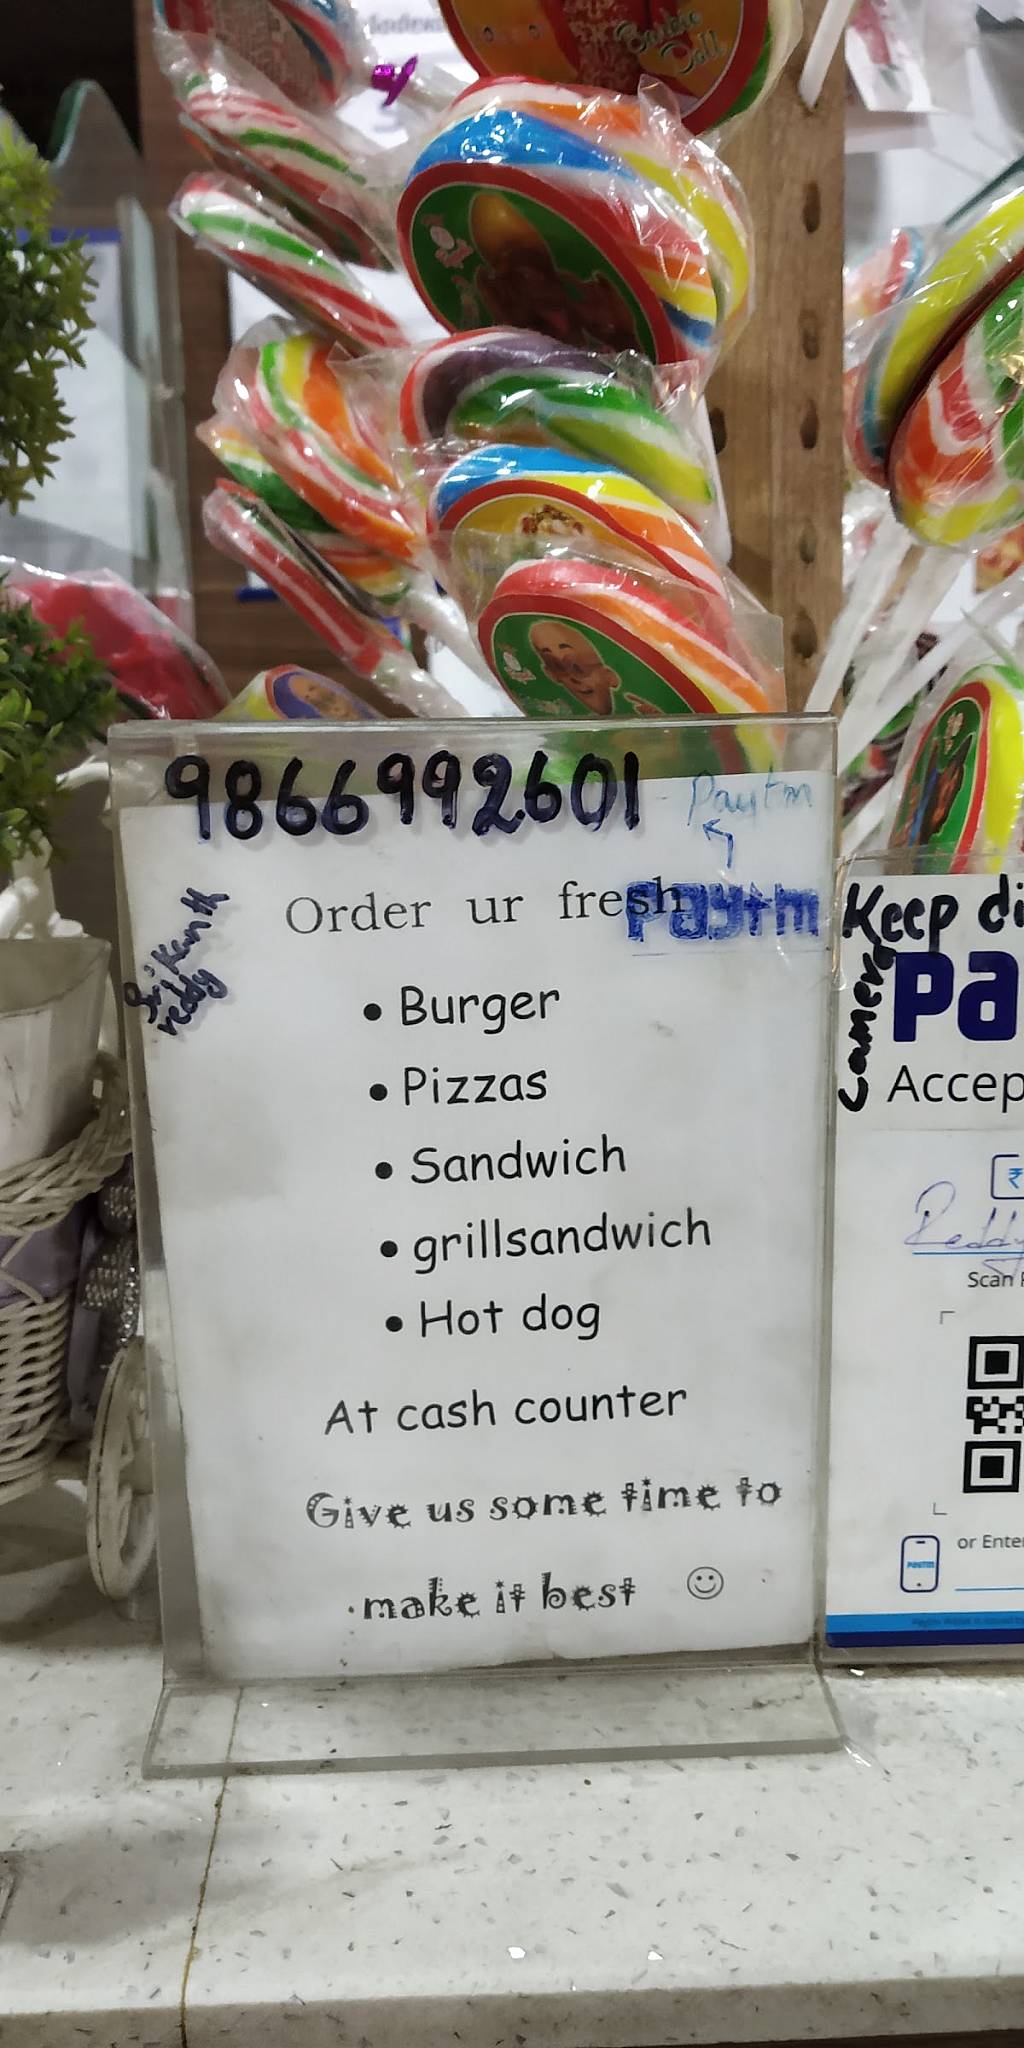 Barbie
Doll
9866992601 - Paytm
Order ur fresh
Paytm
Srikanth
reddy
• Burger
• Pizzas
• Sandwich
• grillsandwich
• Hot dog
At cash counter
Give us some time to
make it best ☺
Keep di
camera
Pa
Accep
₹
Reddy
Scan
or Enter
paytm